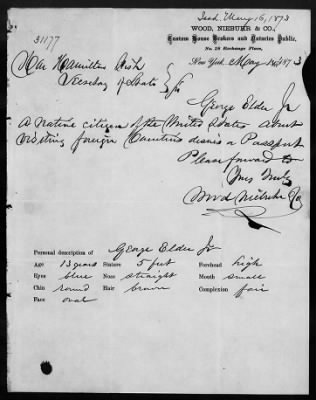 Issd. May 16, 1873
WOOD, NIEBUHR & CO.
31177
Custom House Brokers and Notaries Public,
No. 18 Exchange Place,
New York, May 1873
Hon Hamilton Fish
Secretary of State
George Elder Jr
a native citizen of the United States about
visiting foreign Countries desires a Passport
Please forward to
Yours truly
Wood Niebuhr Co
Personal description of George Elder Jr
Age 13 years Stature 5 feet Forehead high
Eyes blue Nose straight Mouth small
Chin round Hair brown Complexion fair
Face oval